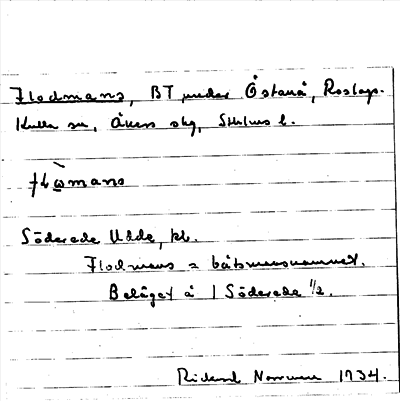 Flodmans, BT under Östanå, Roslags-
Kulla sn, Åkers skg, Sthlms l.
flὼmans
Söderede Udde, kb.
Flodmans = båtsmansnamnet.
Beläget å 1 Söderede 1/2.
Rickard Norrman 1934.